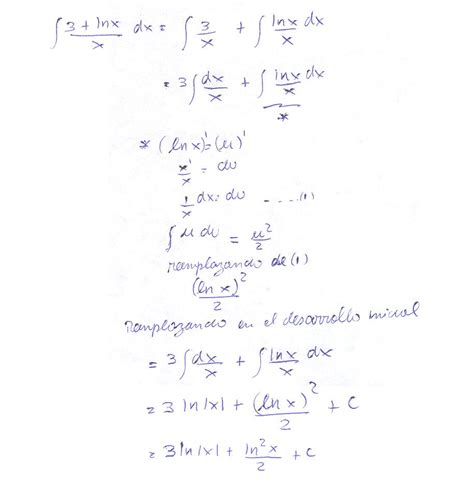 ∫ (3 + lnx)/x dx = ∫ 3/x + ∫ lnx/x dx
= 3∫ dx/x + ∫ lnx/x dx
*
* (ln x)' = (u)'
x'/x = du
1/x dx = du - - - - (1)
∫ u du = u²/2
ramplazando de (1)
(ln x)²/2
ramplazando en el desarrollo inicial
= 3∫ dx/x + ∫ lnx/x dx
= 3 ln|x| + (ln x)²/2 + C
= 3 ln|x| + ln²x/2 + C